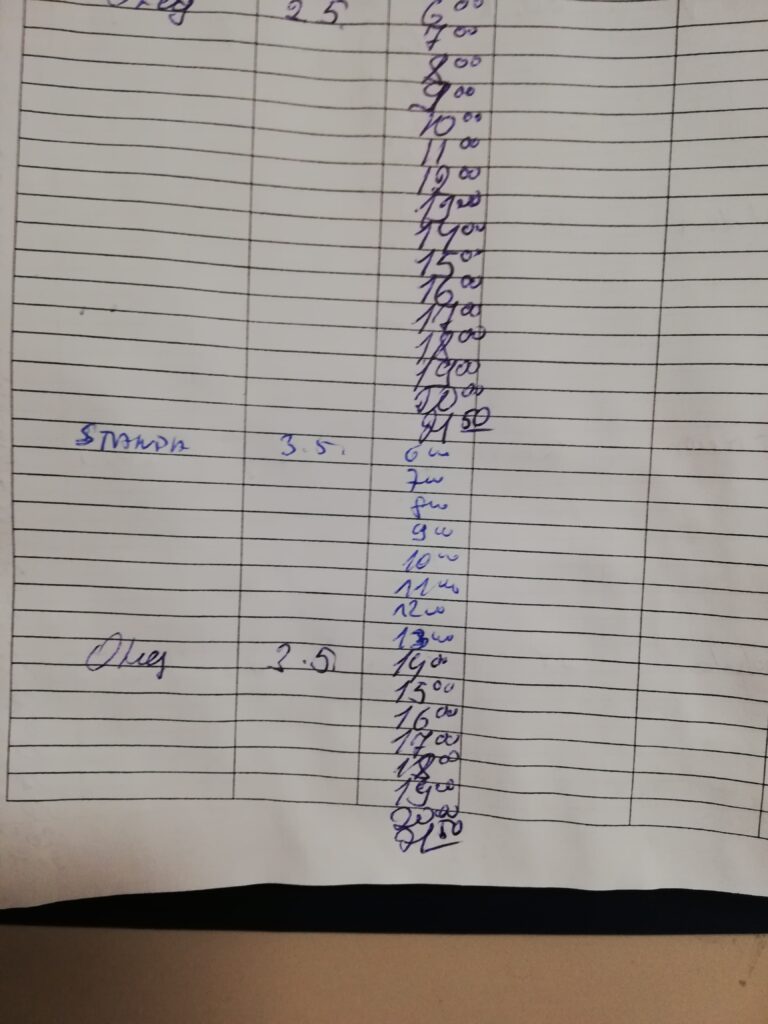 2 5 6 00
7 00
8 00
9 00
10 00
11 00
12 00
13 00
14 00
15 00
16 00
17 00
18 00
19 00
20 00
21 50
3.5. 6 00
7 00
8 00
9 00
10 00
11 00
12 00
13 00
3.5. 14 00
15 00
16 00
17 00
18 00
19 00
20 00
21 50